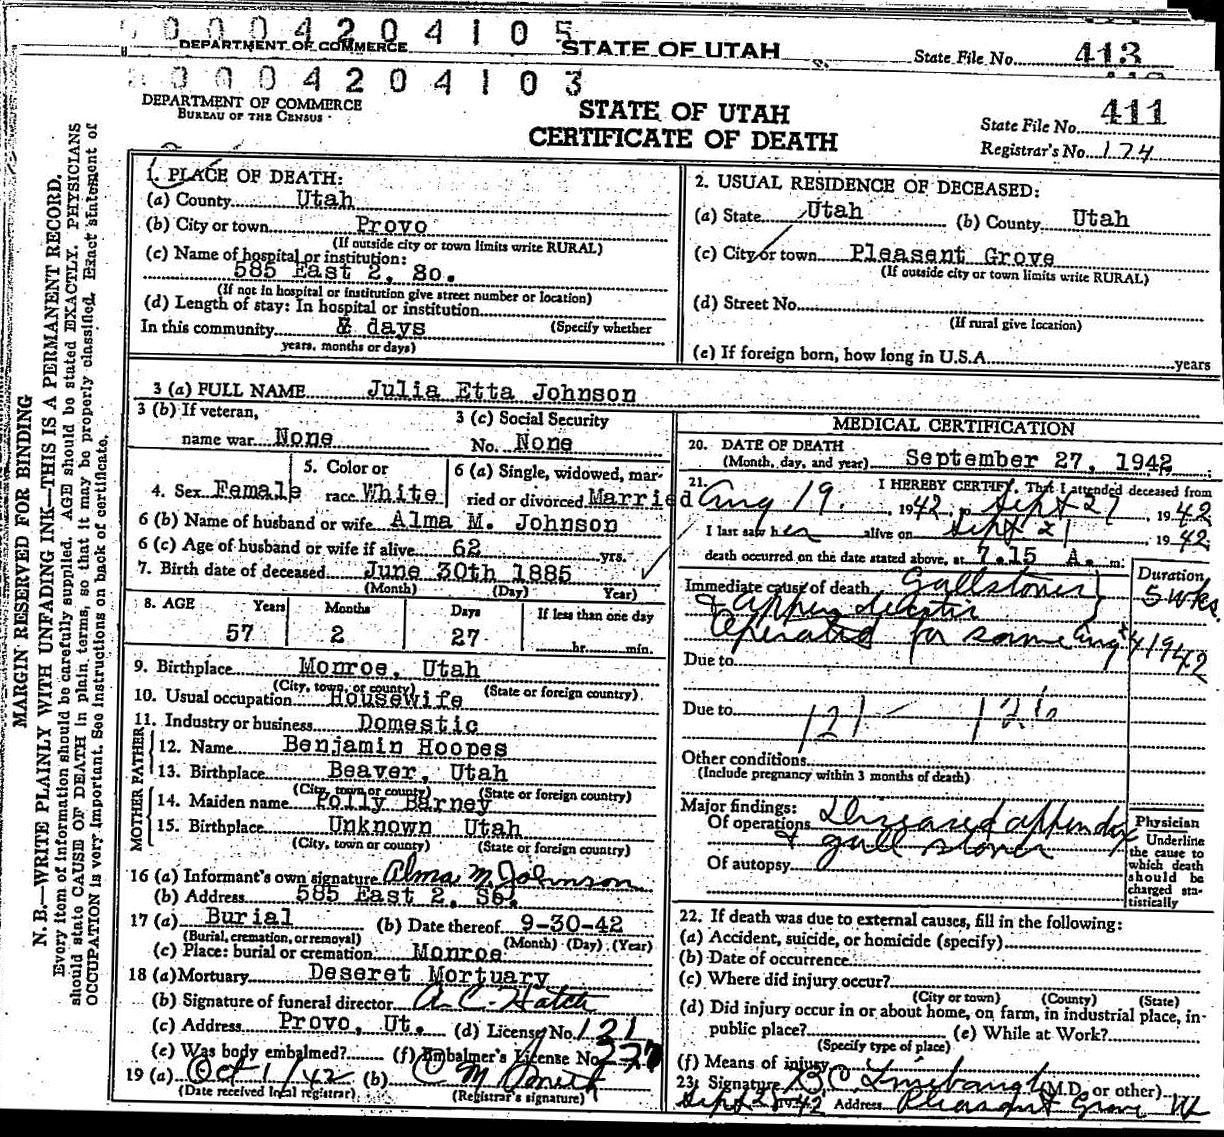 0 0 0 4 2 0 4 1 0 5
DEPARTMENT OF COMMERCE STATE OF UTAH State File No. 413
0 0 0 4 2 0 4 1 0 3
DEPARTMENT OF COMMERCE
BUREAU OF THE CENSUS
STATE OF UTAH
CERTIFICATE OF DEATH
State File No. 411
Registrar's No. 174
MARGIN RESERVED FOR BINDING
N. B.—WRITE PLAINLY WITH UNFADING INK—THIS IS A PERMANENT RECORD.
Every item of information should be carefully supplied. AGE should be stated EXACTLY. PHYSICIANS
should state CAUSE OF DEATH in plain terms, so that it may be properly classified. Exact statement of
OCCUPATION is very important. See instructions on back of certificate.
1. PLACE OF DEATH:
(a) County Utah
(b) City or town Provo
(If outside city or town limits write RURAL)
(c) Name of hospital or institution:
585 East 2, So.
(If not in hospital or institution give street number or location)
(d) Length of stay: In hospital or institution
In this community days (Specify whether
years, months or days)
2. USUAL RESIDENCE OF DECEASED:
(a) State Utah (b) County Utah
(c) City or town Pleasent Grove
(If outside city or town limits write RURAL)
(d) Street No.
(If rural give location)
(e) If foreign born, how long in U.S.A. years
3 (a) FULL NAME Julia Etta Johnson
3 (b) If veteran,
name war None
3 (c) Social Security
No. None
4. Sex Female
5. Color or
race White
6 (a) Single, widowed, mar-
ried or divorced Married
6 (b) Name of husband or wife Alma M. Johnson
6 (c) Age of husband or wife if alive 62 yrs.
7. Birth date of deceased June 30th 1885
(Month) (Day) Year)
8. AGE Years Months Days If less than one day
57 2 27 hr. min.
9. Birthplace Monroe, Utah
(City, town, or county) (State or foreign country)
10. Usual occupation Housewife
11. Industry or business Domestic
FATHER
12. Name Benjamin Hoopes
13. Birthplace Beaver, Utah
(City, town or county) (State or foreign country)
MOTHER
14. Maiden name Polly Barney
15. Birthplace Unknown Utah
(City, town or county) (State or foreign country)
16 (a) Informant's own signature Alma M Johnson
(b) Address 585 East 2, So.
17 (a) Burial (b) Date thereof 9-30-42
(Burial, cremation, or removal) (Month) (Day) (Year)
(c) Place: burial or cremation Monroe
18 (a) Mortuary Deseret Mortuary
(b) Signature of funeral director A. C. Hatch
(c) Address Provo, Ut. (d) License No. 121
(e) Was body embalmed? (f) Embalmer's License No.
19 (a) Oct 1/42 (b) C M Smith
(Date received local registrar) (Registrar's signature)
MEDICAL CERTIFICATION
20. DATE OF DEATH
(Month, day, and year) September 27, 1942
21. I HEREBY CERTIFY, That I attended deceased from
Aug 19. 1942, to Sept 27 1942
I last saw her alive on Sept 21 1942
death occurred on the date stated above, at 7.15 A. m:
Immediate cause of death Gallstones
& appendicitis
Operated for same Aug 24 1942
Duration
5 wks.
Due to
Due to
121 — 126
Other conditions
(Include pregnancy within 3 months of death)
Major findings:
Of operations Diseased appendix
& gall stones
Of autopsy
Physician
Underline
the cause to
which death
should be
charged sta-
tistically
22. If death was due to external causes, fill in the following:
(a) Accident, suicide, or homicide (specify)
(b) Date of occurrence
(c) Where did injury occur?
(City or town) (County) (State)
(d) Did injury occur in or about home, on farm, in industrial place, in-
public place? (e) While at Work?
(Specify type of place)
(f) Means of injury
23. Signature B O Linebaugh (M.D. or other)
Sept 28 1942 Address Pleasant Grove Ut